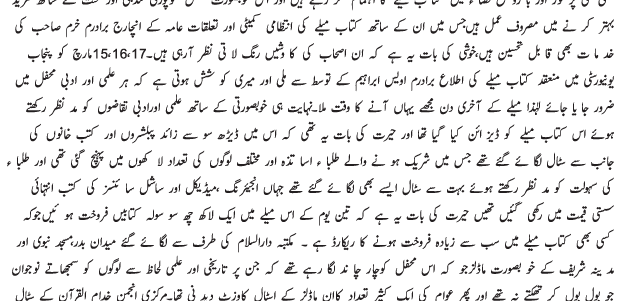 بہتر کرنے میں مصروف عمل ہیں جس میں ان کے ساتھ کتاب میلے کی انتظامی کمیٹی اور تعلقات عامہ کے انچارج برادرم خرم صاحب کی
خدمات بھی قابل تحسین ہیں،خوشی کی بات یہ ہے کہ ان اصحاب کی کاوشیں رنگ لاتی نظر آ رہی ہیں۔ 15،16،17مارچ کو پنجاب
یونیورسٹی میں منعقد کتاب میلے کی اطلاع برادرم اویس ابراہیم کے توسط سے ملی اور میری کوشش ہوتی ہے کہ ہر علمی اور ادبی محفل میں
ضرور جایا جائے لہٰذا میلے کے آخری دن مجھے یہاں آنے کا وقت ملا۔نہایت ہی خوبصورتی کے ساتھ علمی اورادبی تقاضوں کو مد نظر رکھتے
ہوئے اس کتاب میلے کو ڈیزائن کیا گیا تھا اور حیرت کی بات یہ تھی کہ اس میں ڈیڑھ سو سے زائد پبلشروں اور کتب خانوں کی
جانب سے سٹال لگائے گئے تھے جس میں شریک ہونے والے طلباء اساتذہ اور مختلف لوگوں کی تعداد لاکھوں میں پہنچ گئی تھی اور طلباء
کی سہولت کو مد نظر رکھتے ہوئے بہت سے سٹال ایسے بھی لگائے گئے تھے جہاں انجینئرنگ ،میڈیکل اور سائنسز کی کتب انتہائی
سستی قیمت میں رکھی گئیں تھیں حیرت کی بات یہ ہے کہ تین یوم کے اس میلے میں ایک لاکھ چھ سو سولہ کتابیں فروخت ہوئیں جوکہ
کسی بھی کتاب میلے میں سب سے زیادہ فروخت ہونے کا ریکارڈ ہے ۔ مکتبہ دارالسلام کی طرف سے لگائے گئے میدان بدر مسجد نبوی اور
مدینہ شریف کے خوبصورت ماڈلز جو کہ اس محفل کو چار چاند لگا رہے تھے کہ جن پر تاریخی اور علمی لحاظ سے لوگوں کو سمجھاتے نوجوان
جو بول بول کر تھکتے نہ تھے اور پھر عوام کی ایک کثیر تعداد کا ان ماڈلز کے اسٹال کا وزٹ دیدنی تھا۔مرکزی انجمن خدام القرآن کے سٹال